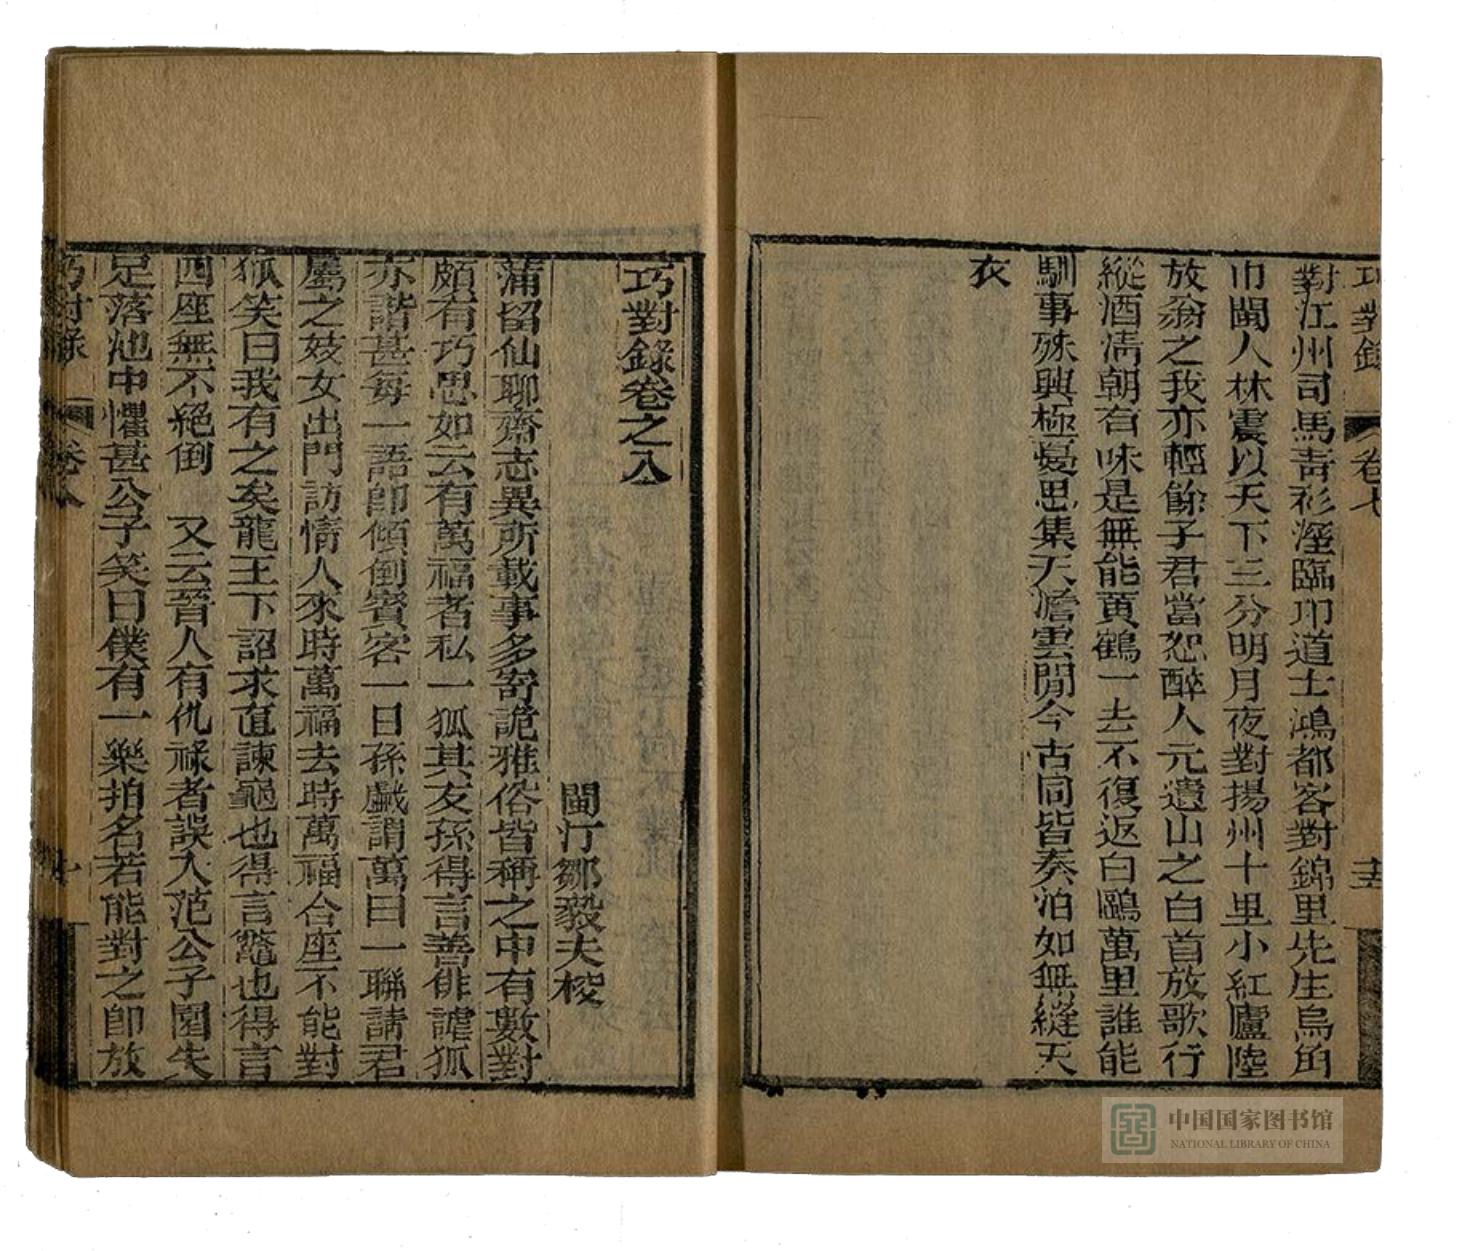 巧對錄 卷七
對江州司馬青衫溼臨卭道士鴻都客對錦里先生烏角
巾閩人林震以天下三分明月夜對揚州十里小紅廬陸
放翁之我亦輕餘子君當恕醉人元遺山之白首放歌行
縱酒清朝有味是無能黃鶴一去不復返白鷗萬里誰能
馴事殊興極憂思集天澹雲閒今古同皆奏泊如無縫天
衣
巧對錄卷之八
閩汀鄒毅夫梭
蒲留仙聊齋志異所載事多寄詭雅俗皆稱之中有數對
頗有巧思如云有萬福者私一狐其友孫得言善俳謔狐
亦諧甚每一語即傾倒賓客一日孫戲謂萬曰一聯請君
屬之妓女出門訪情人來時萬福去時萬福合座不能對
狐笑曰我有之矣龍王下詔求直諫龜也得言鼈也得言
四座無不絕倒 又云晉人有仇祿者誤入范公子園失
足落池中懼甚公子笑曰僕有一樂拍名若能對之即放
巧對錄 卷八
中国国家图书馆
NATIONAL LIBRARY OF CHINA